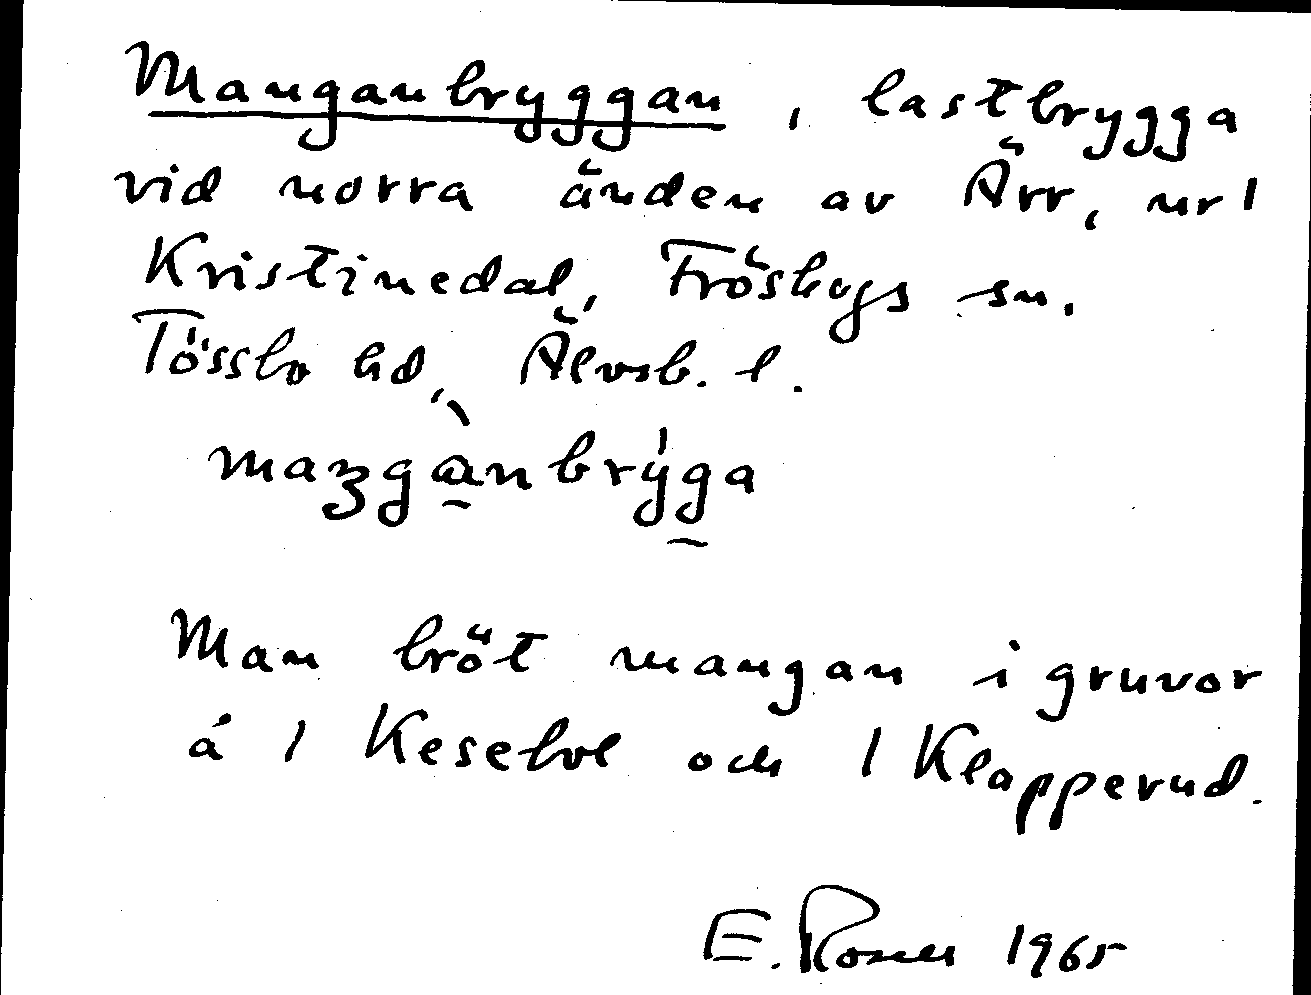 Manganbryggan, lastbrygga
vid norra änden av Ärr, nr 1
Kristinedal, Fröskogs sn.
Tössbo hd, Älvsb. l.
maʒgànbrýga
Man bröt mangan i gruvor
å 1 Kesebol och 1 Klapperud.
E. Rosen 1965